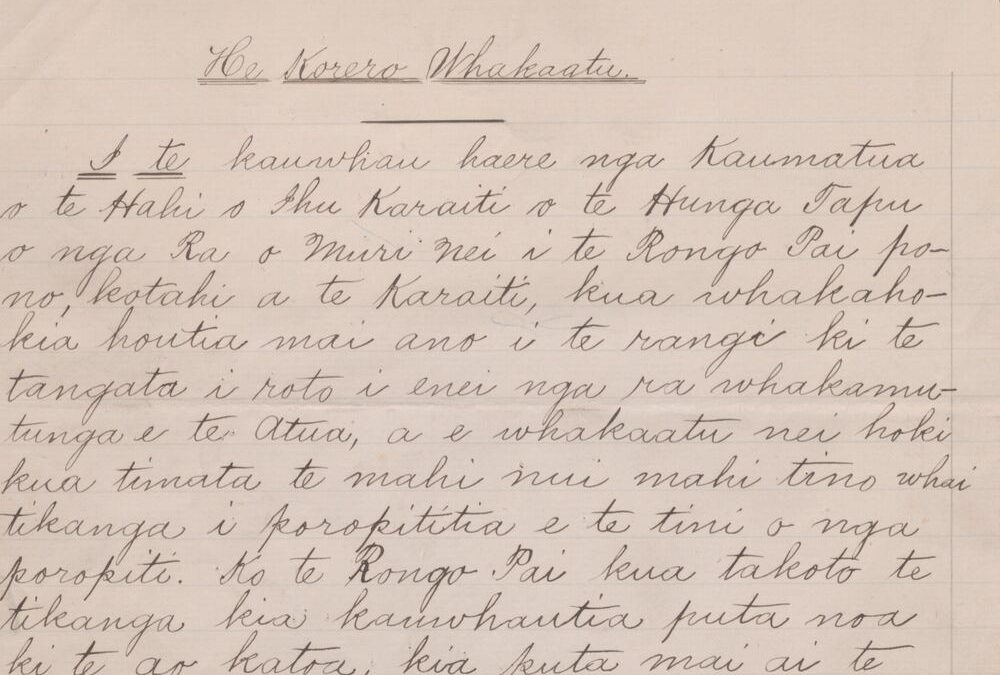 He Korero Whakaatu.
I te kauwhau haere nga Kaumatua
o te Hahi o Ihu Karaiti o te Hunga Tapu
o nga Ra o Muri Nei i te Rongo Pai po-
no, kotahi a te Karaiti, kua whakaho-
kia houtia mai ano i te rangi ki te
tangata i roto i enei nga ra whakamu-
tunga e te Atua, a e whakaatu nei hoki
kua timata te mahi nui mahi tino whai
tikanga i poropititia e te tini o nga
poropiti. Ko te Rongo Pai kua takoto te
tikanga kia kauwhautia puta noa
ki te ao katoa, kia puta mai ai te